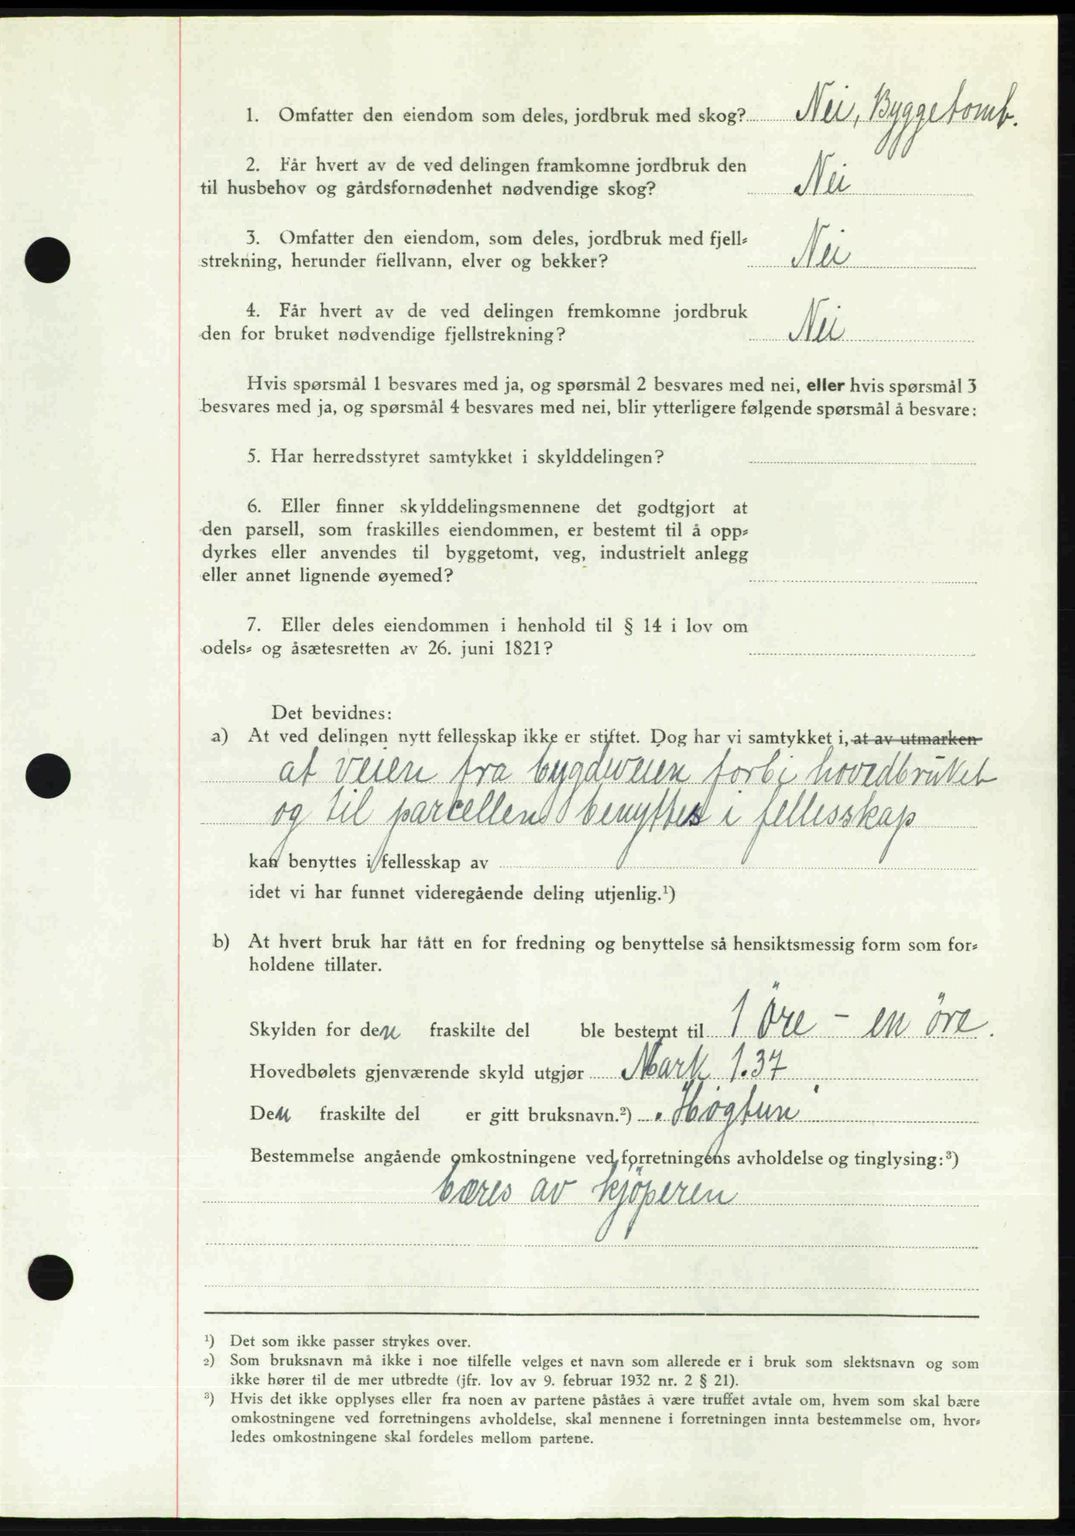 1. Omfatter den eiendom som deles, jordbruk med skog? Nei, Byggetomt.
2. Får hvert av de ved delingen framkomne jordbruk den
til husbehov og gårdsfornødenhet nødvendige skog? Nei
3. Omfatter den eiendom, som deles, jordbruk med fjell=
strekning, herunder fiellvann, elver og bekker? Nei
4. Får hvert av de ved delingen fremkomne jordbruk
den for bruket nødvendige fjellstrekning? Nei
Hvis spørsmål 1 besvares med ja, og spørsmål 2 besvares med nei, eller hvis spørsmål 3
besvares med ja, og spørsmål 4 besvares med nei, blir ytterligere følgende spørsmål å besvare:
5. Har herredsstyret samtykket i skylddelingen?
6. Eller finner skylddelingsmennene det godtgjort at
den parsell, som fraskilles eiendommen, er bestemt til å opp=
dyrkes eller anvendes til byggetomt, veg, industrielt anlegg
eller annet lignende øyemed?
7. Eller deles eiendommen i henhold til § 14 i lov om
odels= og åsætesretten av 26. juni 1821?
Det bevidnes:
a) At ved delingen nytt fellesskap ikke er stiftet. Dog har vi samtykket i, at av utmarken
at veien fra bygdeveien forbi hovedbruket
og til parcellen benyttes i fellesskap
kan benyttes i fellesskap av
idet vi har funnet videregående deling utjenlig.¹)
b) At hvert bruk har fått en for fredning og benyttelse så hensiktsmessig form som for=
holdene tillater.
Skylden for den fraskilte del ble bestemt til 1 öre - en öre.
Hovedbølets gjenværende skyld utgjør Mark 1.37
Den fraskilte del er gitt bruksnavn.²) "Høgtun"
Bestemmelse angående omkostningene ved forretningens avholdelse og tinglysing:³)
bæres av kjöperen
¹) Det som ikke passer strykes over.
²) Som bruksnavn må ikke i noe tilfelle velges et navn som allerede er i bruk som slektsnavn og som
ikke hører til de mer utbredte (jfr. lov av 9. februar 1932 nr. 2 § 21).
³) Hvis det ikke opplyses eller fra noen av partene påståes å være truffet avtale om, hvem som skal bære
omkostningene ved forretningens avholdelse, skal mennene i forretningen innta bestemmelse om, hvor=
ledes omkostningene skal fordeles mellom partene.